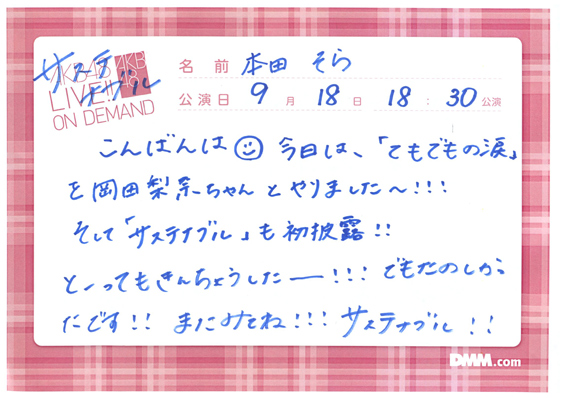 サステナブル
AKB48
LIVE!!
ON DEMAND
AKB
48
名前 本田 そら
公演日 9月 18日 18:30公演
こんばんは 今日は、「てもでもの涙」
を岡田梨奈ちゃんとやりました〜!!!
そして「サステナブル」も初披露!!
とーってもきんちょうしたー!!! でもたのしかっ
たです!! またみてね!!! サステナブル!!
DMM.com